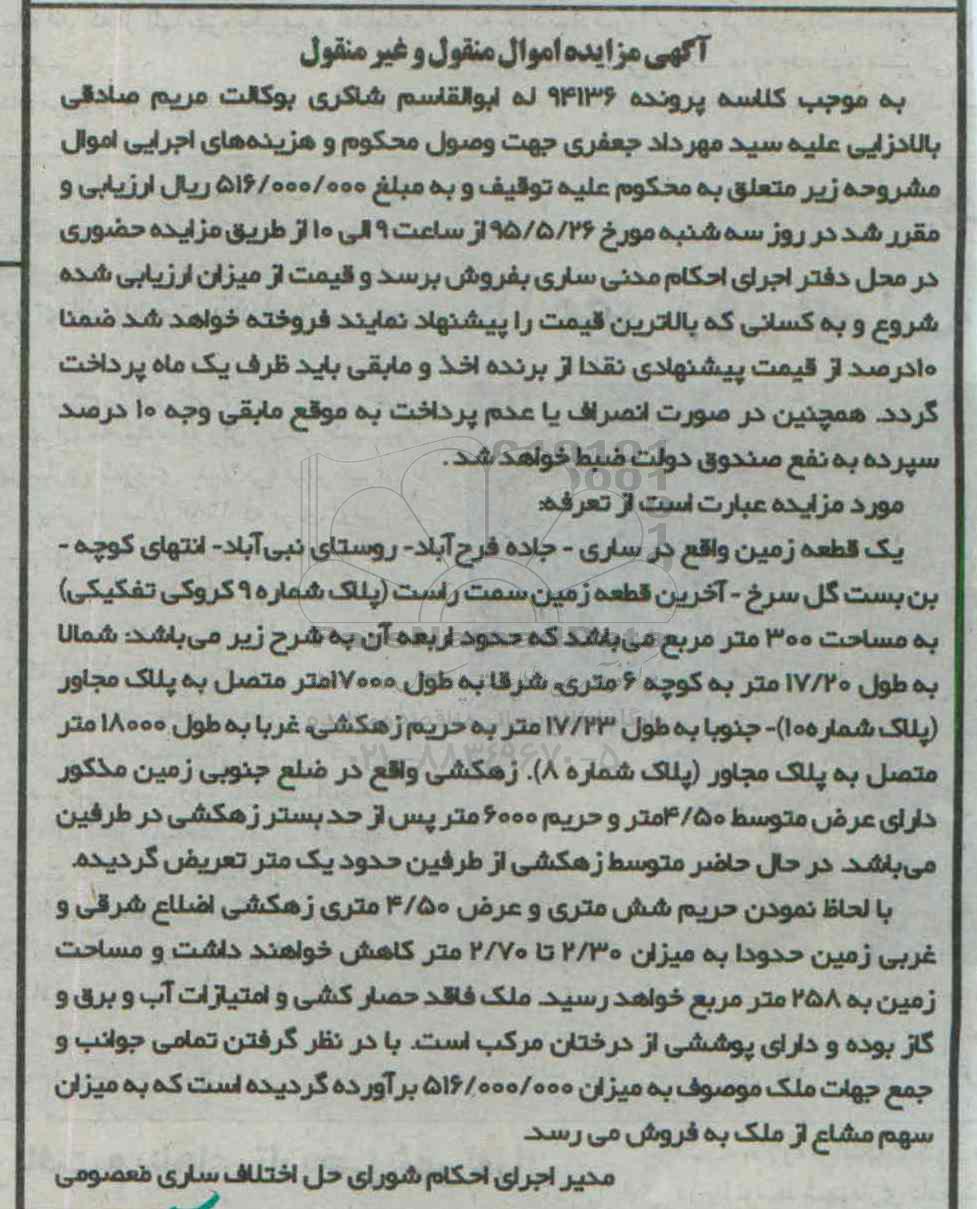 آگهی مزایده اموال منقول و غیر منقول
به موجب کلاسه پرونده ۹۴۱۳۶ له ابوالقاسم شاکری بوکالت مریم صادقی
بالادزایی علیه سید مهرداد جعفری جهت وصول محکوم و هزینه‌های اجرایی اموال
مشروحه زیر متعلق به محکوم علیه توقیف و به مبلغ ۵۱۶/۰۰۰/۰۰۰ ریال ارزیابی و
مقرر شد در روز سه شنبه مورخ ۹۵/۵/۲۶ از ساعت ۹ الی ۱۰ از طریق مزایده حضوری
در محل دفتر اجرای احکام مدنی ساری بفروش برسد و قیمت از میزان ارزیابی شده
شروع و به کسانی که بالاترین قیمت را پیشنهاد نمایند فروخته خواهد شد ضمنا
۱۰درصد از قیمت پیشنهادی نقدا از برنده اخذ و مابقی باید ظرف یک ماه پرداخت
گردد. همچنین در صورت انصراف یا عدم پرداخت به موقع مابقی وجه ۱۰ درصد
سپرده به نفع صندوق دولت ضبط خواهد شد.
مورد مزایده عبارت است از تعرفه:
یک قطعه زمین واقع در ساری - جاده فرح‌آباد- روستای نبی‌آباد- انتهای کوچه -
بن بست گل سرخ - آخرین قطعه زمین سمت راست (پلاک شماره ۹ کروکی تفکیکی)
به مساحت ۳۰۰ متر مربع می‌باشد که حدود اربعه آن به شرح زیر می‌باشد: شمالا
به طول ۱۷/۲۰ متر به کوچه ۶ متری، شرقا به طول ۱۷۰۰۰متر متصل به پلاک مجاور
(پلاک شماره۱۰)- جنوبا به طول ۱۷/۲۳ متر به حریم زهکشی، غربا به طول ۱۸۰۰۰ متر
متصل به پلاک مجاور (پلاک شماره ۸). زهکشی واقع در ضلع جنوبی زمین مذکور
دارای عرض متوسط ۴/۵۰متر و حریم ۶۰۰۰ متر پس از حد بستر زهکشی در طرفین
می‌باشد. در حال حاضر متوسط زهکشی از طرفین حدود یک متر تعریض گردیده.
با لحاظ نمودن حریم شش متری و عرض ۴/۵۰ متری زهکشی اضلاع شرقی و
غربی زمین حدودا به میزان ۲/۳۰ تا ۲/۷۰ متر کاهش خواهند داشت و مساحت
زمین به ۲۵۸ متر مربع خواهد رسید. ملک فاقد حصار کشی و امتیازات آب و برق و
گاز بوده و دارای پوششی از درختان مرکب است. با در نظر گرفتن تمامی جوانب و
جمع جهات ملک موصوف به میزان ۵۱۶/۰۰۰/۰۰۰ برآورده گردیده است که به میزان
سهم مشاع از ملک به فروش می رسد.
مدیر اجرای احکام شورای حل اختلاف ساری معصومی
۰۲۱-۸۸۳۴۹۶۷۰-۵